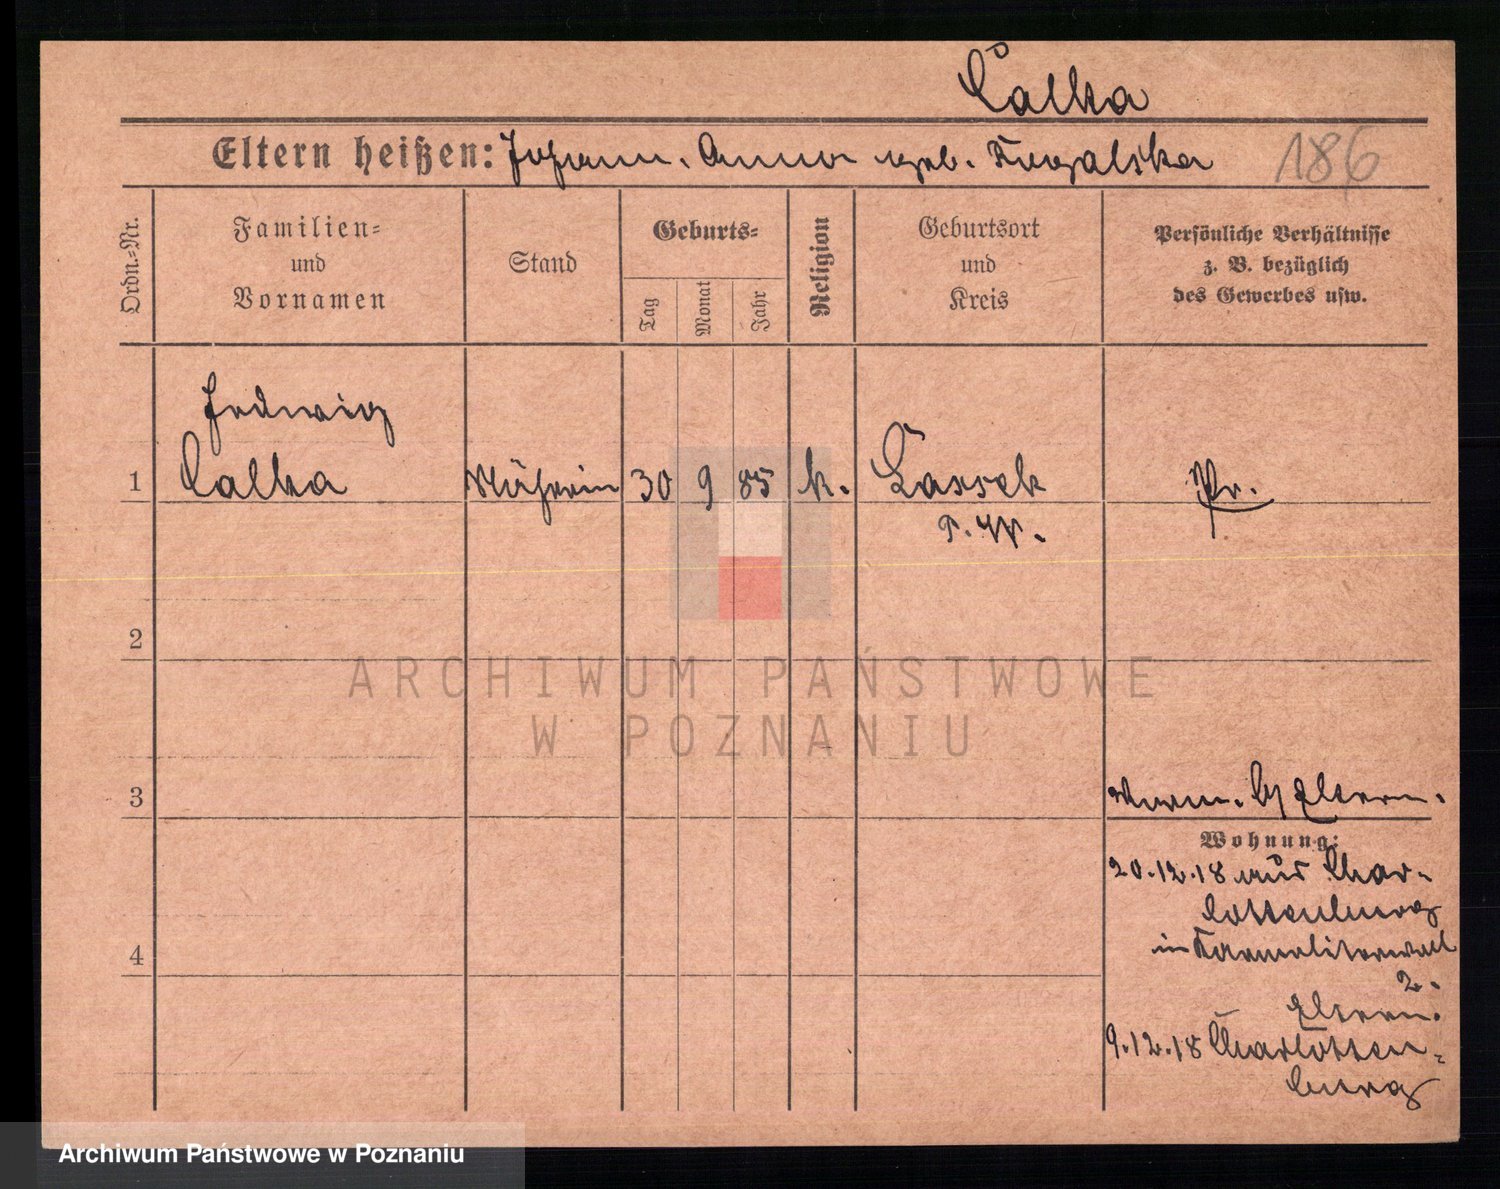 Calka
Eltern heißen: Johann. Anna geb. Kowalska
186
Ordn.-Nr.
Familien-
und
Vornamen
Stand
Geburts-
Tag
Monat
Jahr
Religion
Geburtsort
und
Kreis
Persönliche Verhältnisse
z. B. bezüglich
des Gewerbes usw.
Hedwig
1 Calka Näherin 30 9 85 k. Lassek Pr.
P. W.
2
3
b/ Eltern.
Wohnung:
20.12.18 aus Char-
lottenburg
in Karmeliterwall
2.
Eltern.
4
9.12.18 Charlotten-
burg
ARCHIWUM PAŃSTWOWE
W POZNANIU
Archiwum Państwowe w Poznaniu